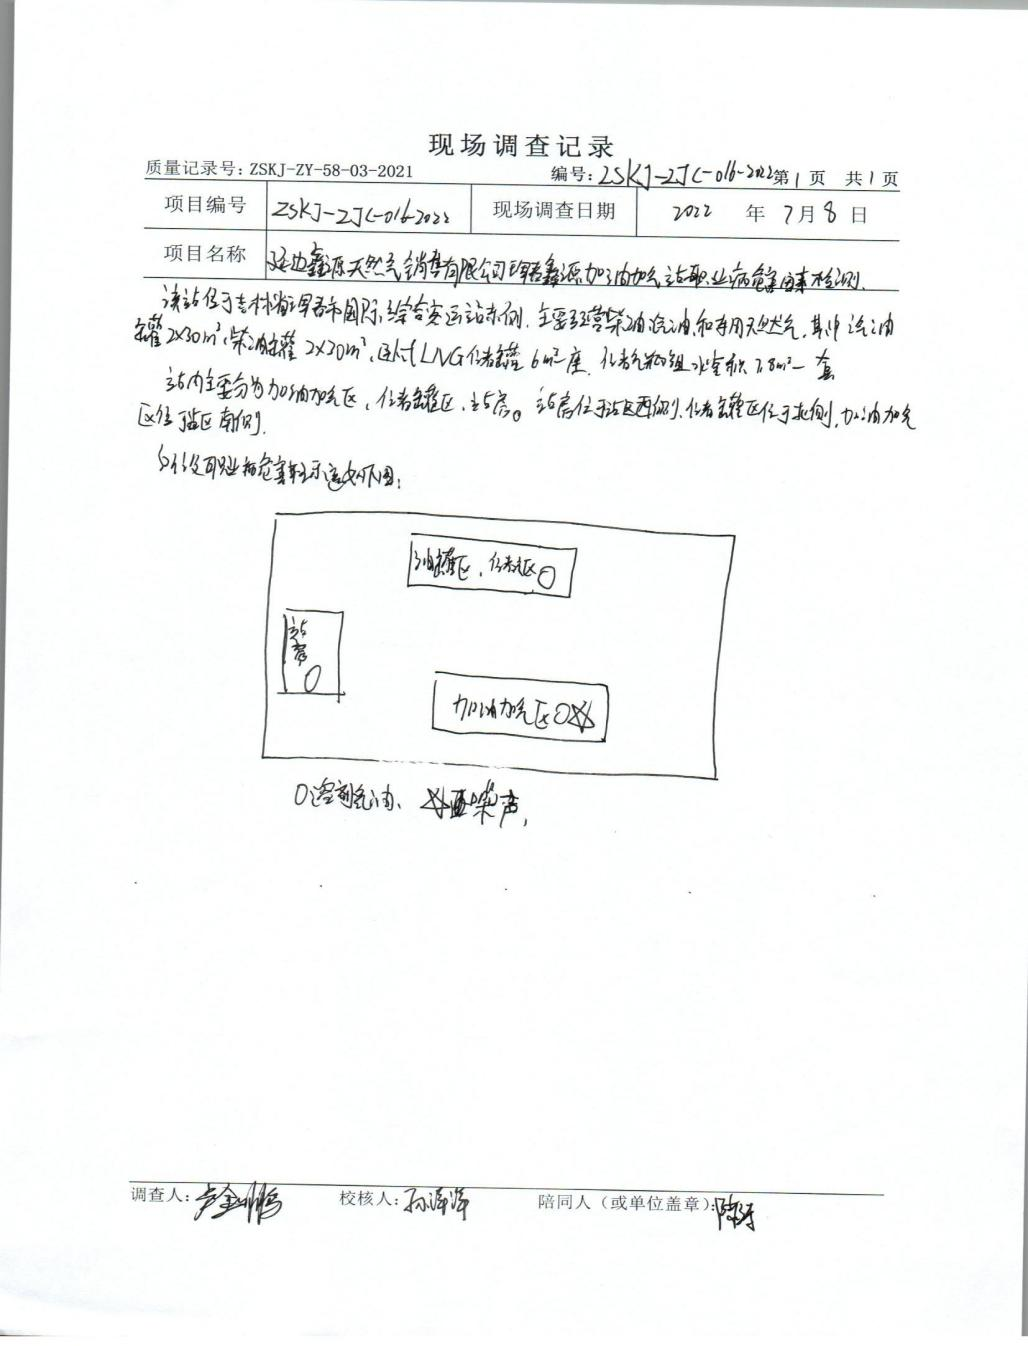 现场调查记录
质量记录号：ZSKJ-ZY-58-03-2021 编号：ZSKJ-ZJC-016-2022 第1页 共1页
项目编号 ZSKJ-ZJC-016-2022 现场调查日期 2022 年 7月 8 日
项目名称 延边鑫源天然气销售有限公司珲春鑫源加油加气站职业病危害因素检测.
该站位于吉林省珲春市国际综合客运站东侧.主要经营柴油汽油和车用天然气.其中汽油
罐2×30m³,柴油罐 2×20m³,卧式LNG储罐 6m³座.储气瓶组水容积 7.8m³一套
站内主要分为加油加气区,储罐区,站房。站房位于站区西侧.储罐区位于北侧,加油加气
区位于站区南侧.
职业病危害 下图:
油罐区,储气区○
站
房
○
加油加气区○☆
○溶剂汽油、☆噪声,
调查人： 校核人：孙洋洋 陪同人（或单位盖章）：